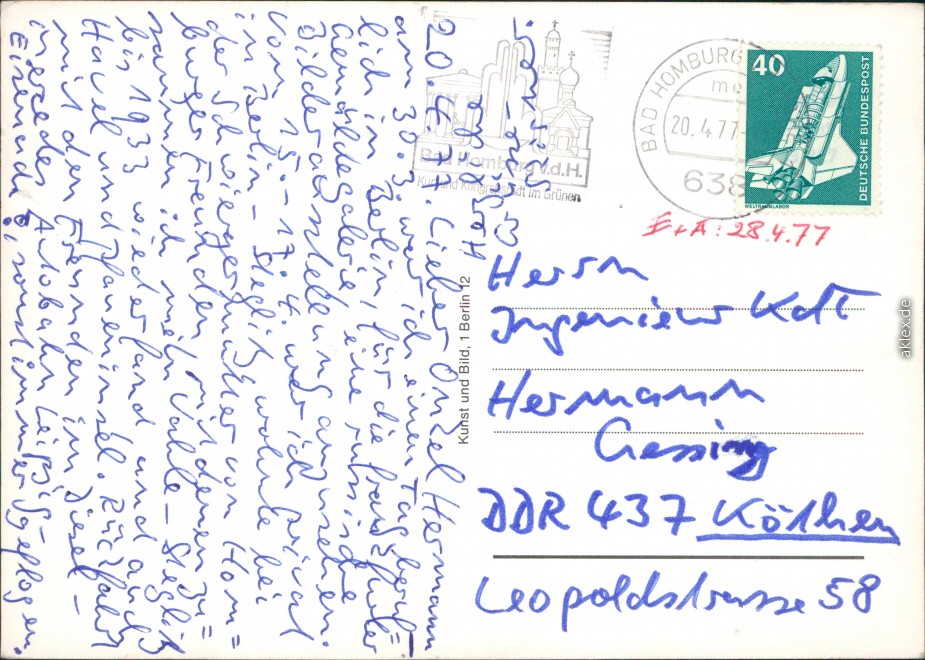 20.4.77. Lieber Onkel Hermann
am 30.3. war ich einen Tag beruf=
lich in Berlin, für die Frankfurter
Gemäldegalerie eine russische
Bilderausstellung anzusehen.
Vom 15.-17.4. war ich privat
in Berlin-Steglitz wohnte bei
der Schwiegermutter von Hom=
burger Freunden mit denen zu=
sammen ich mein Steglitz
bis 1933 wiederfand und auch
Havel und Pfaueninsel. Rückfahrt
mit den Freunden im Diesel-
Mercedes Autobahn Leipzig-
Eisenach, sonst immer geflogen.
Bad Homburg v.d.H.
Kur- und Kongreßstadt im Grünen
BAD HOMBURG
20.4.77
638
40
DEUTSCHE BUNDESPOST
WELTRAUMLABOR
E+A: 28.4.77
Kunst und Bild, 1 Berlin 12
Herrn
Ingenieur KdT
Hermann
Giessing
DDR 437 Köthen
Leopoldstrasse 58
aklex.de